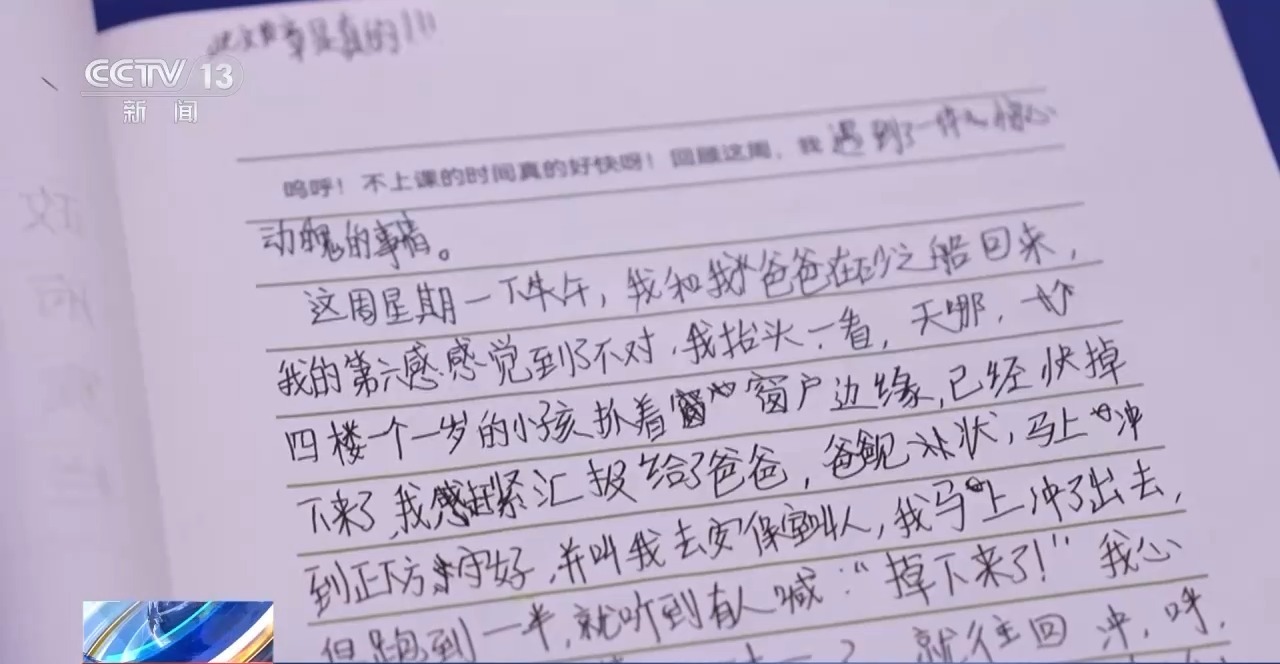 此文章是真的!!!
CCTV 13
新闻
呜呼！不上课的时间真的好快呀！回顾这周，我遇到了一件人惊心
动魄的事情。
这周星期一下午，我和我爸爸在沙之船回来，
我的第六感感觉到了不对，我抬头一看，天哪，
四楼一个一岁的小孩扒着窗户边缘，已经快掉
下来了，我赶紧汇报给了爸爸，爸爸见状，马上冲
到正下方守好，并叫我去安保室叫人，我马上冲了出去，
但跑到一半，就听到有人喊：“掉下来了！”我心
就往回冲，呼，